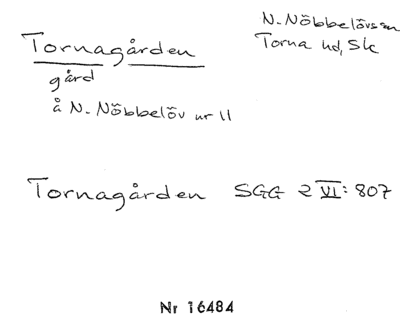 Tornagården
gård
å N. Nöbbelöv nr 11
N. Nöbbelövs sn
Torna hd, Sk
Tornagården SGG 2 VI: 807
Nr 16484